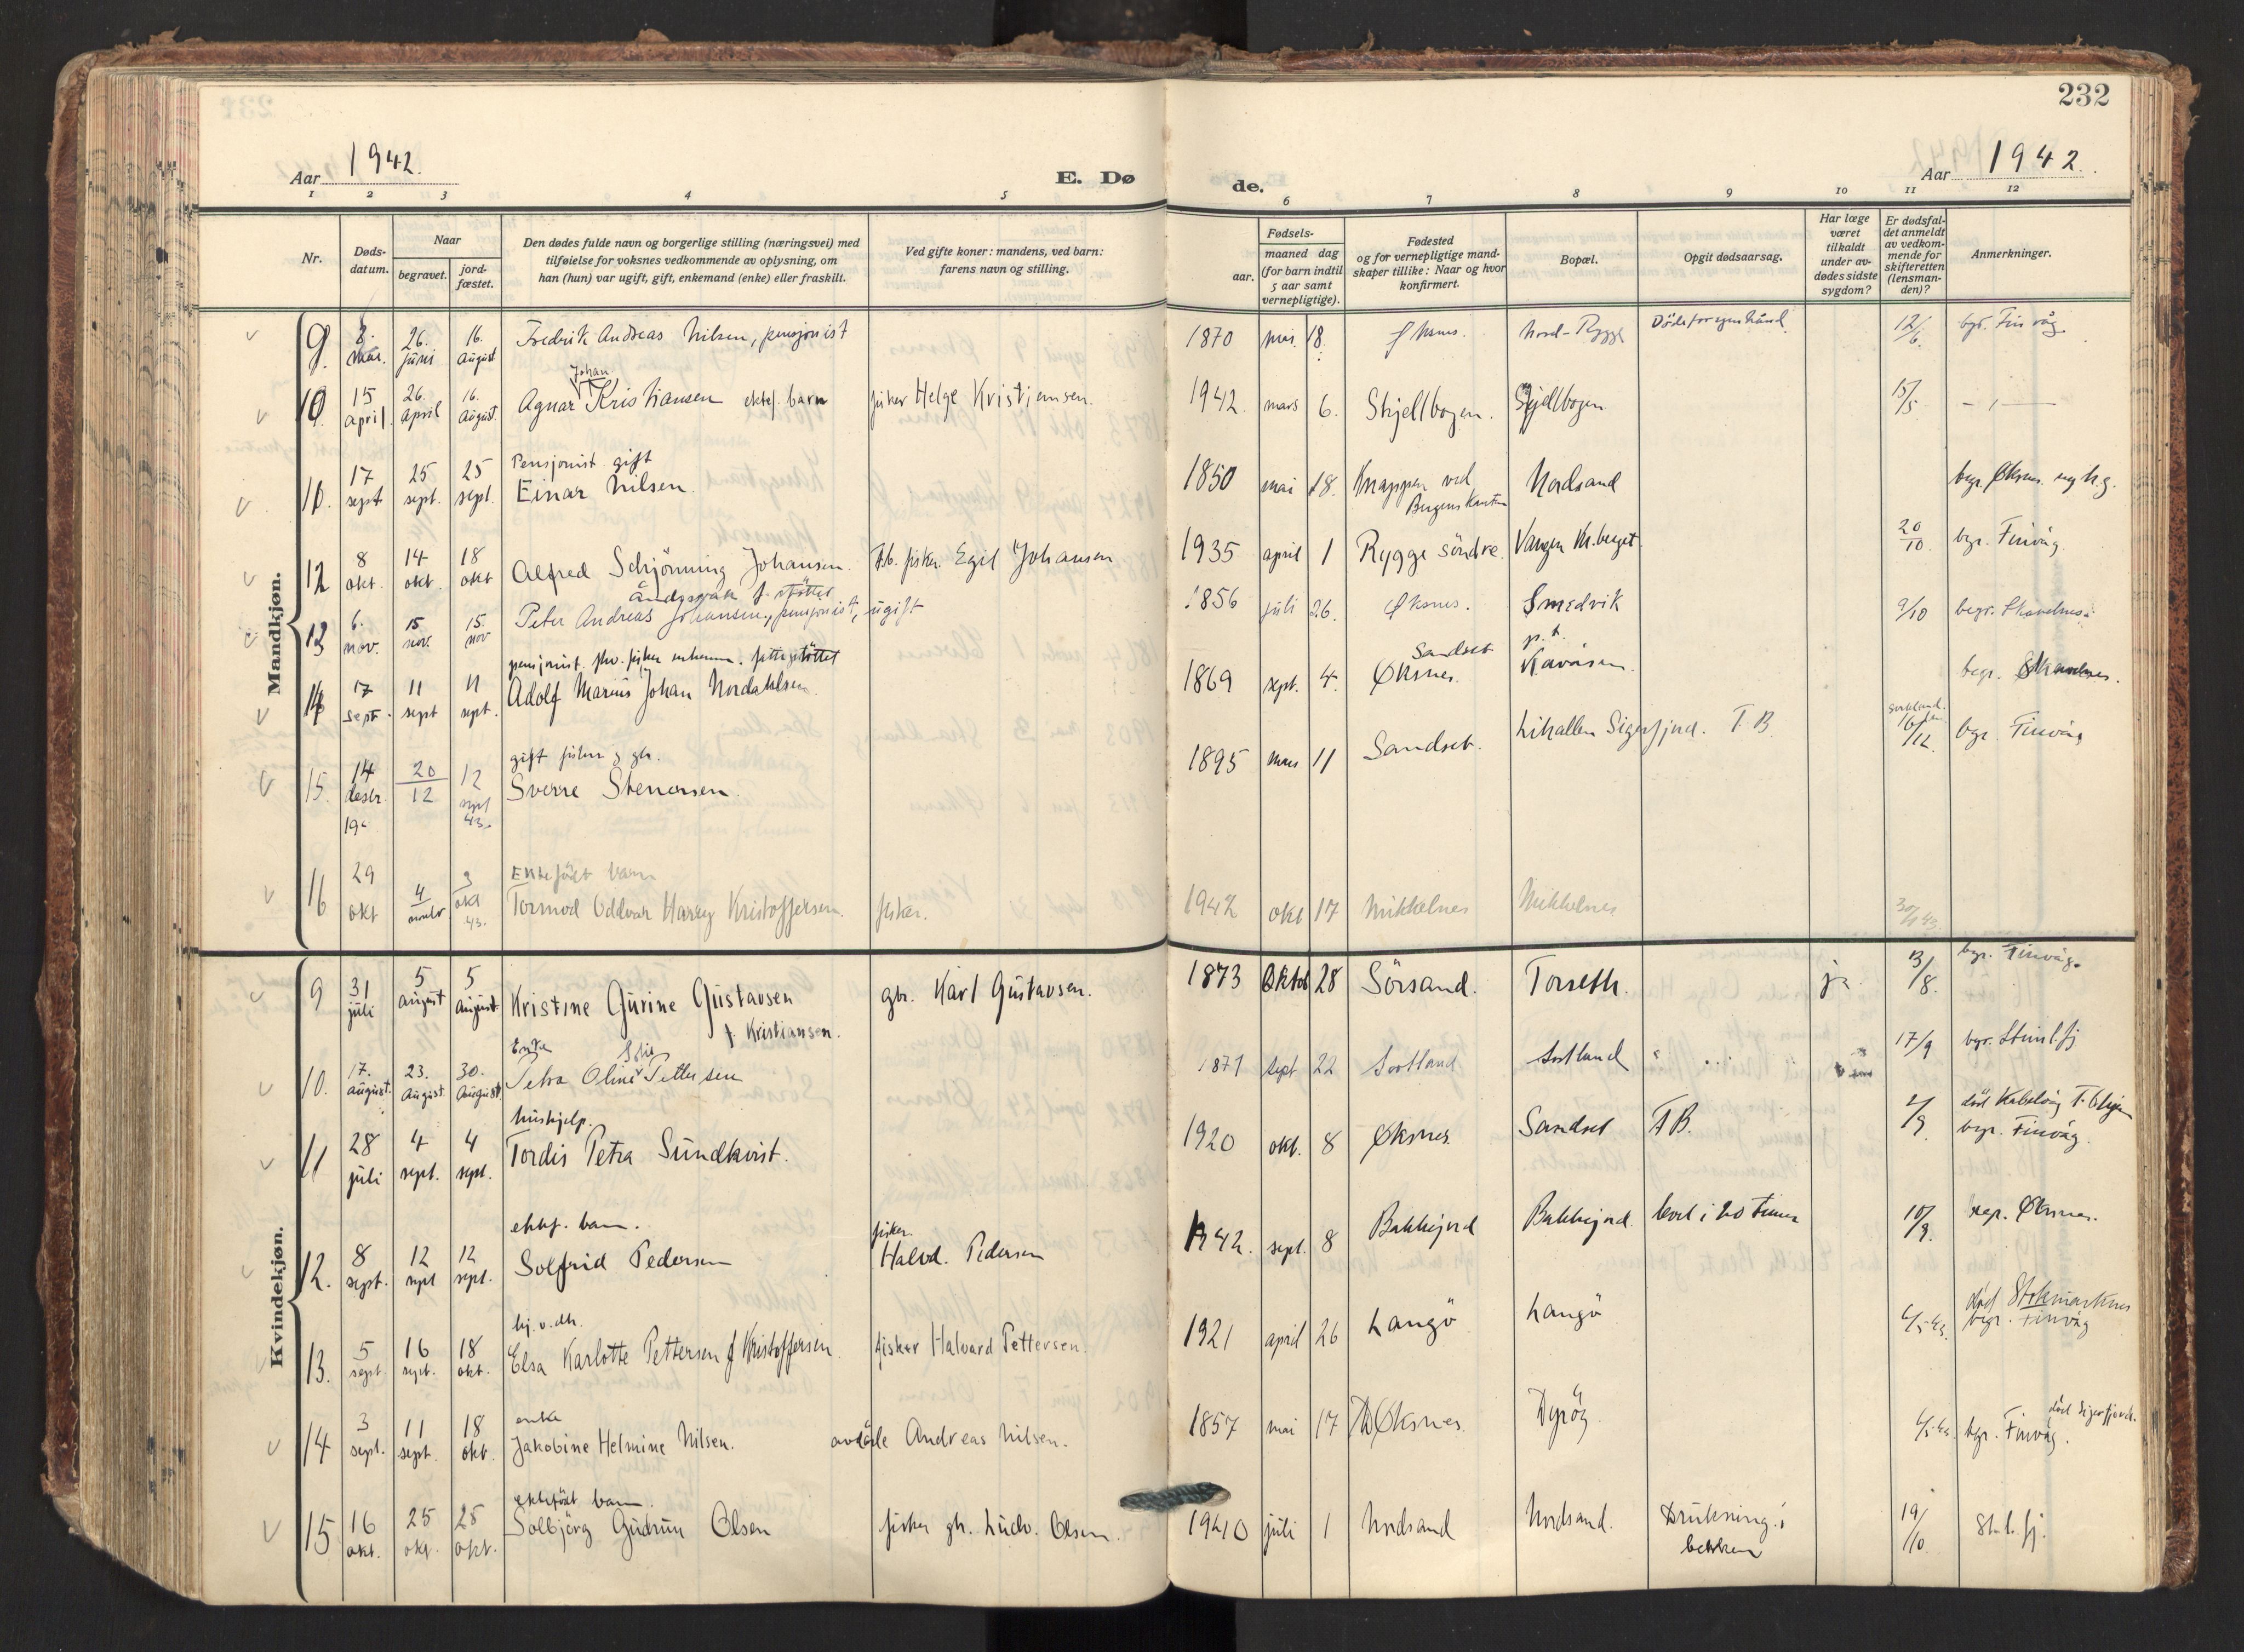 232
Aar 1942.
E. Dø
de.
Aar 1942.
1 2 3 4 5 6 7 8 9 10 11 12
Nr.
Døds-
datum.
Naar
begravet.
jord-
fæstet.
Den dødes fulde navn og borgerlige stilling (næringsvei) med
tilføielse for voksnes vedkommende av oplysning, om
han (hun) var ugift, gift, enkemand (enke) eller fraskilt.
Ved gifte koner: mandens, ved barn:
farens navn og stilling.
Fødsels-
aar.
maaned dag
(for barn indtil
5 aar samt
vernepligtige).
Fødested
og for vernepligtige mand-
skaper tillike: Naar og hvor
konfirmert.
Bopæl.
Opgit dødsaarsag.
Har læge
været
tilkaldt
under av-
dødes sidste
sygdom?
Er dødsfal-
det anmeldt
av vedkom-
mende for
skifteretten
(lensman-
den)?
Anmerkninger.
Mandkjøn.
9. 8. mar. 26. juni 16. august Fredrik Andreas Nilsen, pensjonist 1870 mai 18. Øksnes. Nord-Rygge Döde for egen hånd 12/6. bgr. Finvåg
Johan
10. 15 april. 26. april 16. august. Agnar Kristiansen ektef. barn fisker Helge Kristiansen. 1942. mars 6. Skjellbogen. Skjellbogen 15/5 — " —
Pensjonist gift
17 sept 25 sept. 25 sept. Einar Nilsen. 1850 mai 18. Knappen ved Nordsand begr. Øksnes
12 8 okt. 14 okt. 18 okt Alfred Schjönning Johansen. fisker Egil Johansen 1935 april 1 Rygge söndre. Vangen 20/10. bgr. Finvåg.
åndssvak
13 6. nov. 15 nov. 15. nov Peter Andreas Johansen, pensjonist, ugift 1856 juli 26. Øksnes. Smedvik 9/10 begr. Skavelnes.
pensjonist fisker
14 17 sept. 11 sept 11 sept. Adolf Marius Johan Nordahlsen. 1869 sept. 4. Sandset Øksnes. p.t. Kavåsen. begr.
gift fisker g gbr.
15. 14 desbr 20/12 12 sept 43. Sverre Stenersen. 1895 mars 11 Sandset. Lihallen Sigerfjord. T.B. 16/12. bgr. Finvåg
Ektefödt barn
16 29 okt 4 novbr 3 okt 43. Tormod Oddvar Harry Kristoffersen. fisker. 1942 okt 17 Nikkelnes Nikkelnes
Kvindekjøn.
9 31 juli 5 august 5 august. Kristine Gurine Gustavsen gbr. Karl Gustavsen. 1873 Oktob 28 Sörsand. Torseth. ja 13/8. bgr. Finvåg.
f. Kristiansen.
Enke
10. 17. august. 23. august. 30. august. Petra Oline Pettersen 1871 sept 22 Sortland Sortland 17/9
hushjelp.
11 28 juli 4 sept. 4 sept. Tordis Petra Sundkvist. 1920 okt. 8 Øksnes. Sandset T.B. 2/9. död Kabelvåg
bgr. Finvåg.
ektef. barn.
12. 8 sept. 12 sept 12 sept. Solfrid Pedersen fisker Halvd. Pedersen 1942. sept. 8 Bakkejord Bakkejord. levet i 20 timer 10/9. bgr. Øksnes.
13. 5 sept 16 sept. 18 okt. Elsa Karlotte Pettersen f Kristoffersen. fisker Halvard Pettersen. 1921 april 26 Langö Langö död Stokmarknes
bgr. Finvåg
enke
14 3 sept. 11 sept. 18 okt. Jakobine Helmine Nilsen. avdöde Andreas Nilsen. 1857 mai 17 Øksnes. Dyröy död Sigerfjord.
bgr. Finvåg.
ektefödt barn.
15 16 okt. 25 okt. 25 okt. Solbjörg Gudrun Olsen fisker gb. Ludv. Olsen. 1940 juli 1 Nordsand Nordsand. Drukning i
bekken 19/10. St.l.fj.